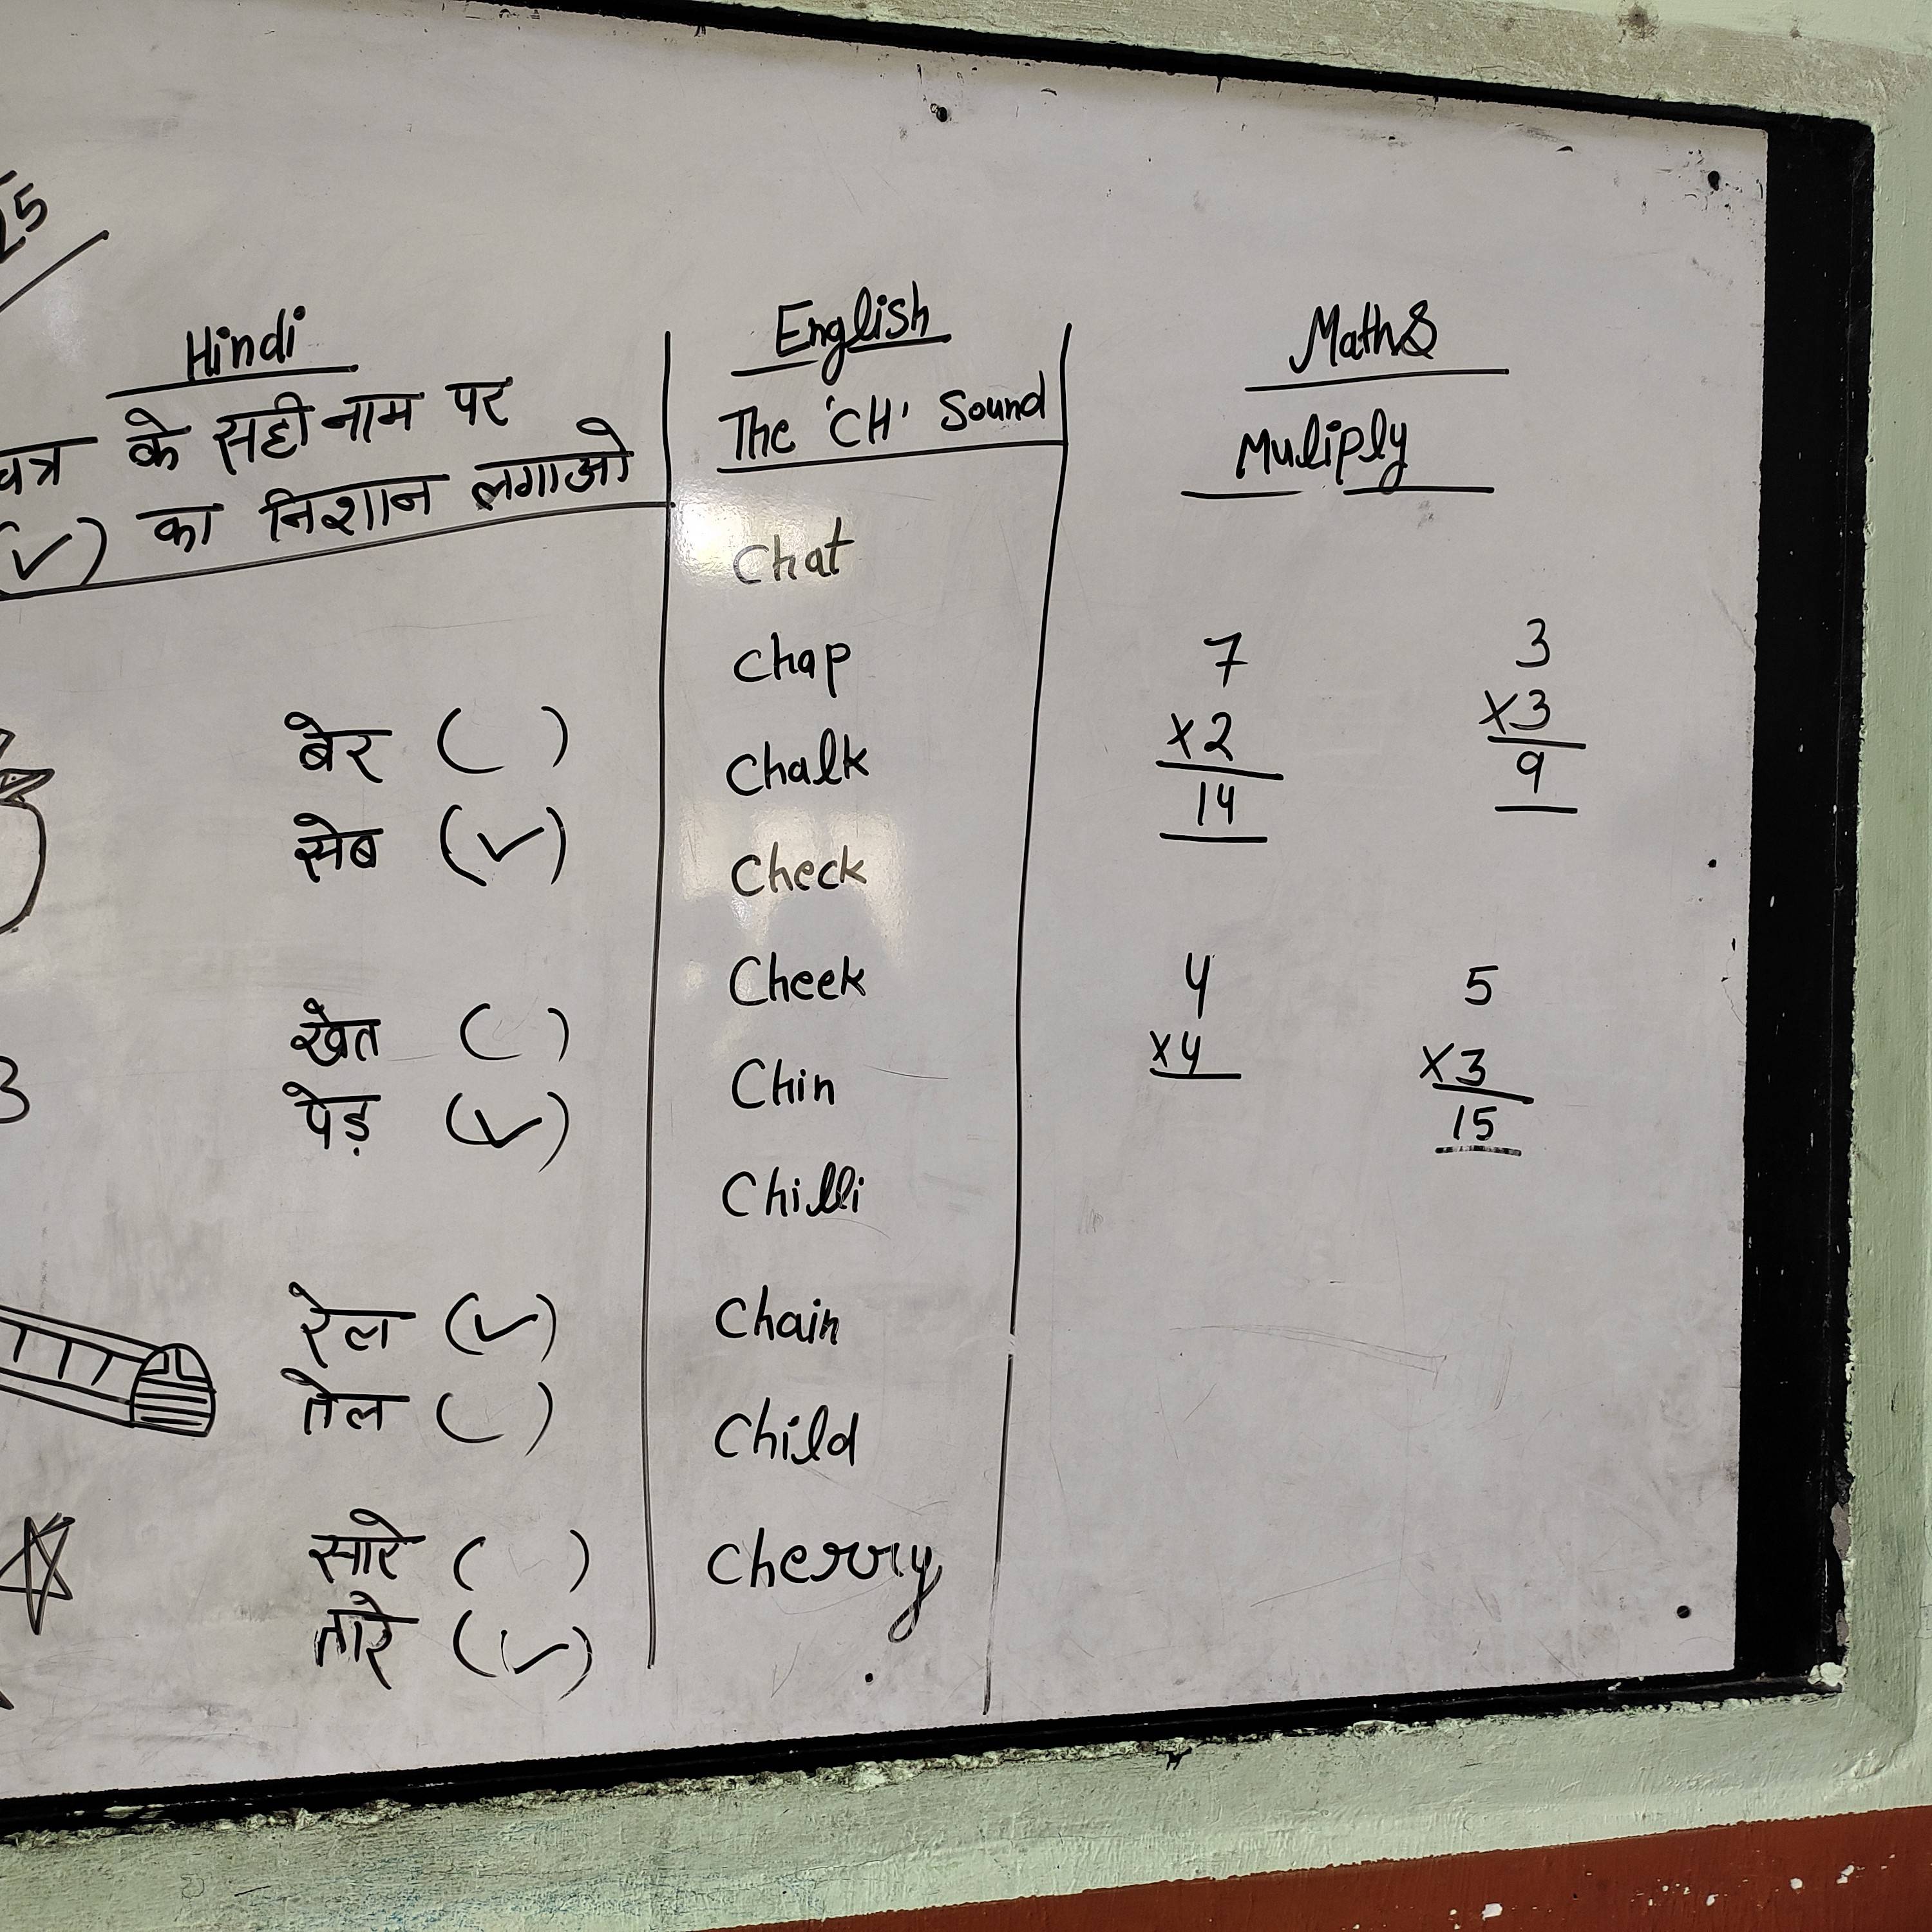 25
Hindi
के सही नाम पर
(✓) का निशान लगाओ
बेर ( )
सेब (✓)
3
खेत ( )
पेड़ (✓)
रेल (✓)
तेल ( )
सारे ( )
तारे (✓)
English
The 'CH' Sound
Chat
Chap
Chalk
Check
Cheek
Chin
Chilli
Chain
Child
Cherry
Maths
Muliply
7
×2
14
3
×3
9
4
×4
5
×3
15